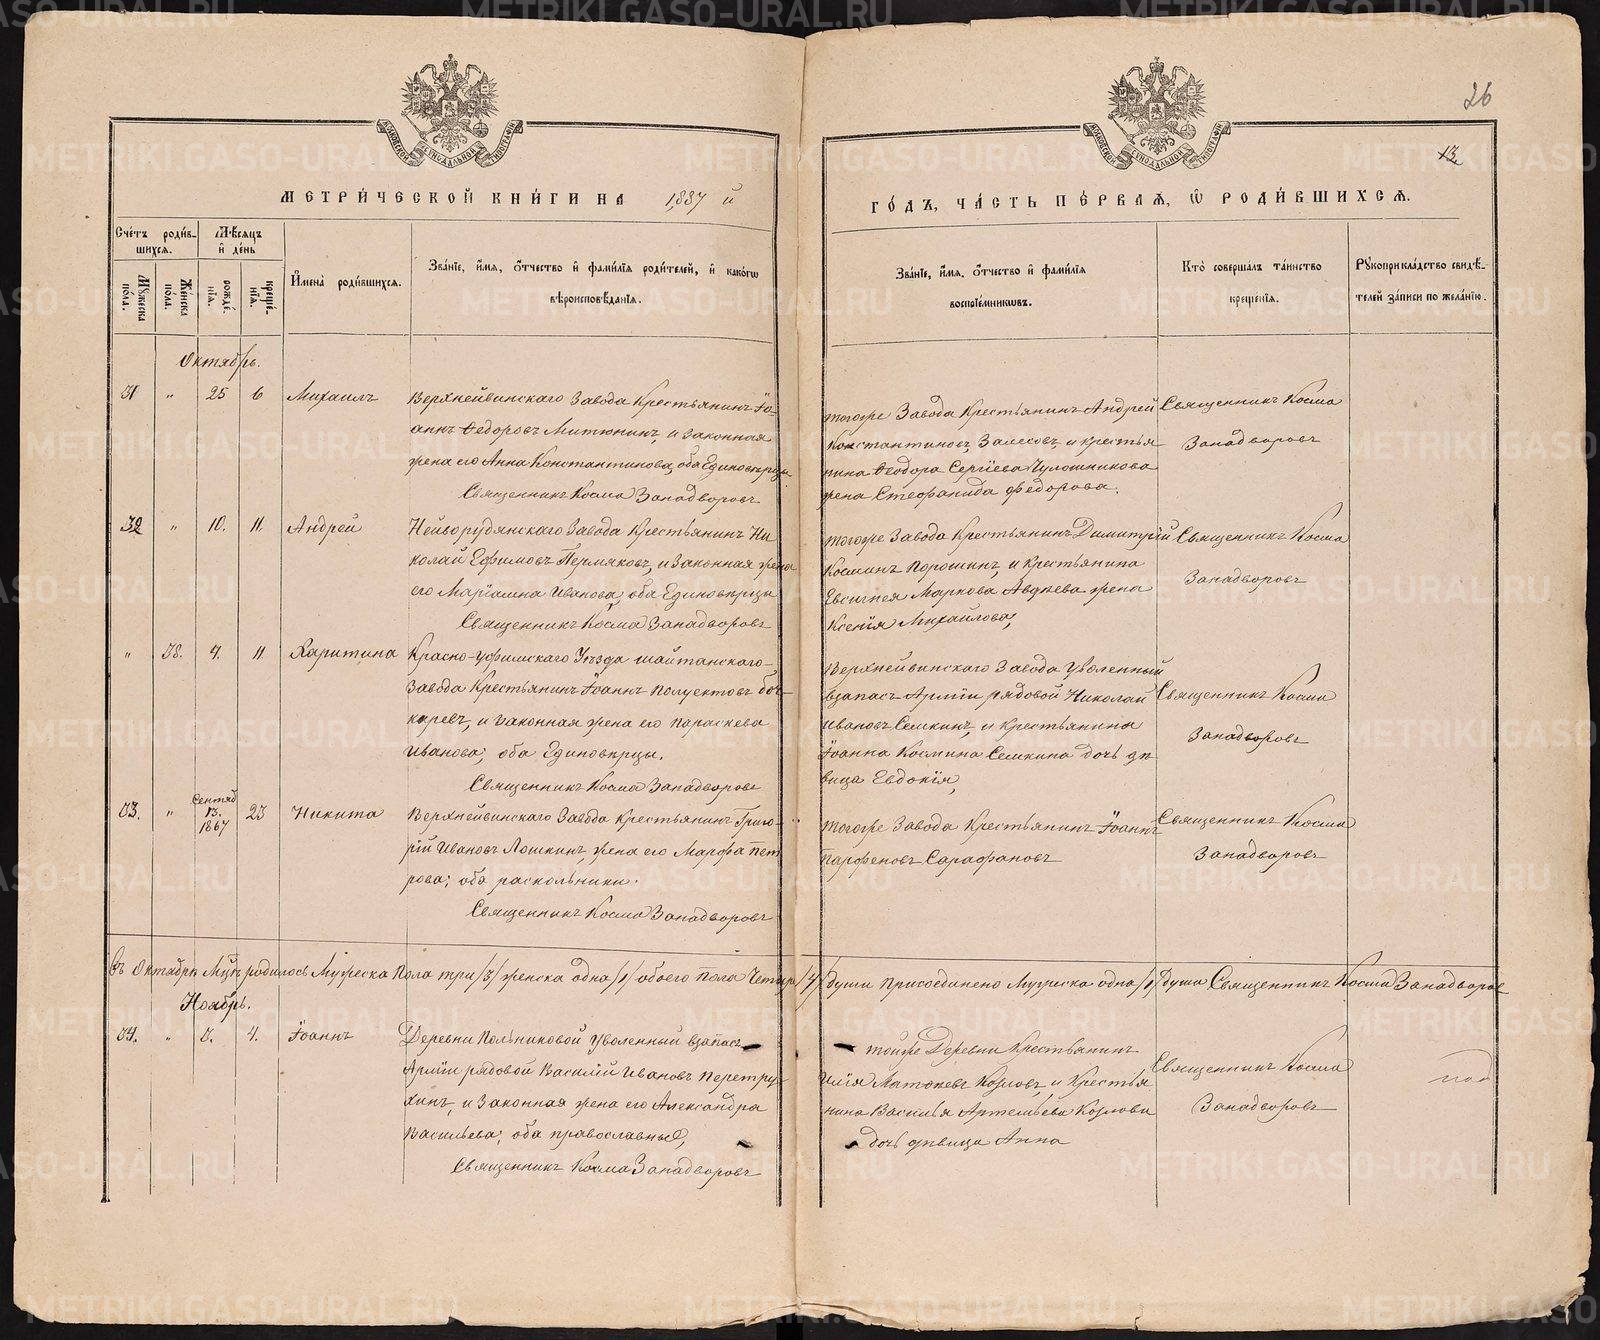 26
13
МЕТРИ́ЧЕСКОЙ КНИ́ГИ НА 1887 й
ГО́ДЪ, ЧА́СТЬ ПЕ́РВАЯ, Ѿ РОДИ́ВШИХСЯ.
Сче́тъ роди́вшихся.
Мѣ́сяцъ и҆ де́нь
Мꙋ́жеска по́ла.
Же́нска по́ла.
рожде́нїѧ.
креще́нїѧ.
И҆мена̀ роди́вшихсѧ.
Зва́нїе, и҆́мѧ, ѻ҆́тчество и҆ фами́лїѧ роди́телей, и҆ како́гѡ
вѣроисповѣ́данїѧ.
Зва́нїе, и҆́мѧ, ѻ҆́тчество и҆ фами́лїѧ
воспрїе́мникѡвъ.
Кто̀ соверша́лъ та́инство
креще́нїѧ.
Рꙋкоприкла́дство свидѣ́-
телей за́писи по жела́нїю.
Октябрь.
31 " 25 6 Михаилъ
Верхнейвинскаго Завода Крестьянинъ Іо-
аннъ Ѳедоровъ Митюнинъ, и законная
жена его Анна Константинова, оба Единовѣрцы
Священникъ Косма Западворовъ
тогоже Завода Крестьянинъ Андрей
Константиновъ Залесовъ, и крестья
нина Ѳеодора Сергіева Чулошникова
жена Стефанида Федорова.
Священникъ Косма
Западворовъ
32 " 10. 11. Андрей
Нейворудянскаго Завода Крестьянинъ Ни
колай Ефимовъ Пермяковъ, и законная жена
его Маріамна Иванова, оба Единовѣрцы
Священникъ Косма Западворовъ
тогоже Завода Крестьянинъ Димитрій
Косминъ Порошинъ, и Крестьянина
Евсигнея Маркова Авдѣева жена
Ксенія Михайлова,
Священникъ Косма
Западворовъ
" 38. 4. 11 Харитина
Красно-уфимскаго Уѣзда шайтанскаго-
Завода Крестьянинъ Іоаннъ Полуектовъ боч-
каревъ, и законная жена его Параскева
Иванова; оба Единовѣрцы.
Священникъ Косма Западворовъ
Верхнейвинскаго Завода Уволенный
взапасъ Арміи рядовой Николай
Ивановъ Семкинъ, и крестьянина
Іоанна Космина Семкина дочь дѣ
вица Евдокія,
Священникъ Косма
Западворовъ
33. " Сентяб 13. 1867 23 Никита
Верхнейвинскаго Завода Крестьянинъ Григо-
рій Ивановъ Лошкинъ, жена его Марфа Пет
рова; оба раскольники.
Священникъ Косма Западворовъ
тогоже Завода Крестьянинъ Іоаннъ
Парфеновъ Сарафановъ
Священникъ Косма
Западворовъ
Въ Октябрѣ Мцѣ родилось Мужеска Пола три /3/ женска одна /1/ обоего Пола Четыре /4/ Души Присоединено Мужеска одна /1/ Душа Священникъ Косма Западворов
Ноябрь.
34. " 3. 4. Іоаннъ
Деревни Польниковой Уволенный взапасъ
Арміи рядовой Василій Ивановъ Перетру-
хинъ, и законная жена его Александра
Васильева; оба православные,
Священникъ Косма Западворовъ
тойже Деревни Крестьянинъ
Илія Матѳеевъ Козловъ, и Крестья
нина Василья Артемьева Козлова
дочь дѣвица Анна
Священникъ Косма
Западворовъ